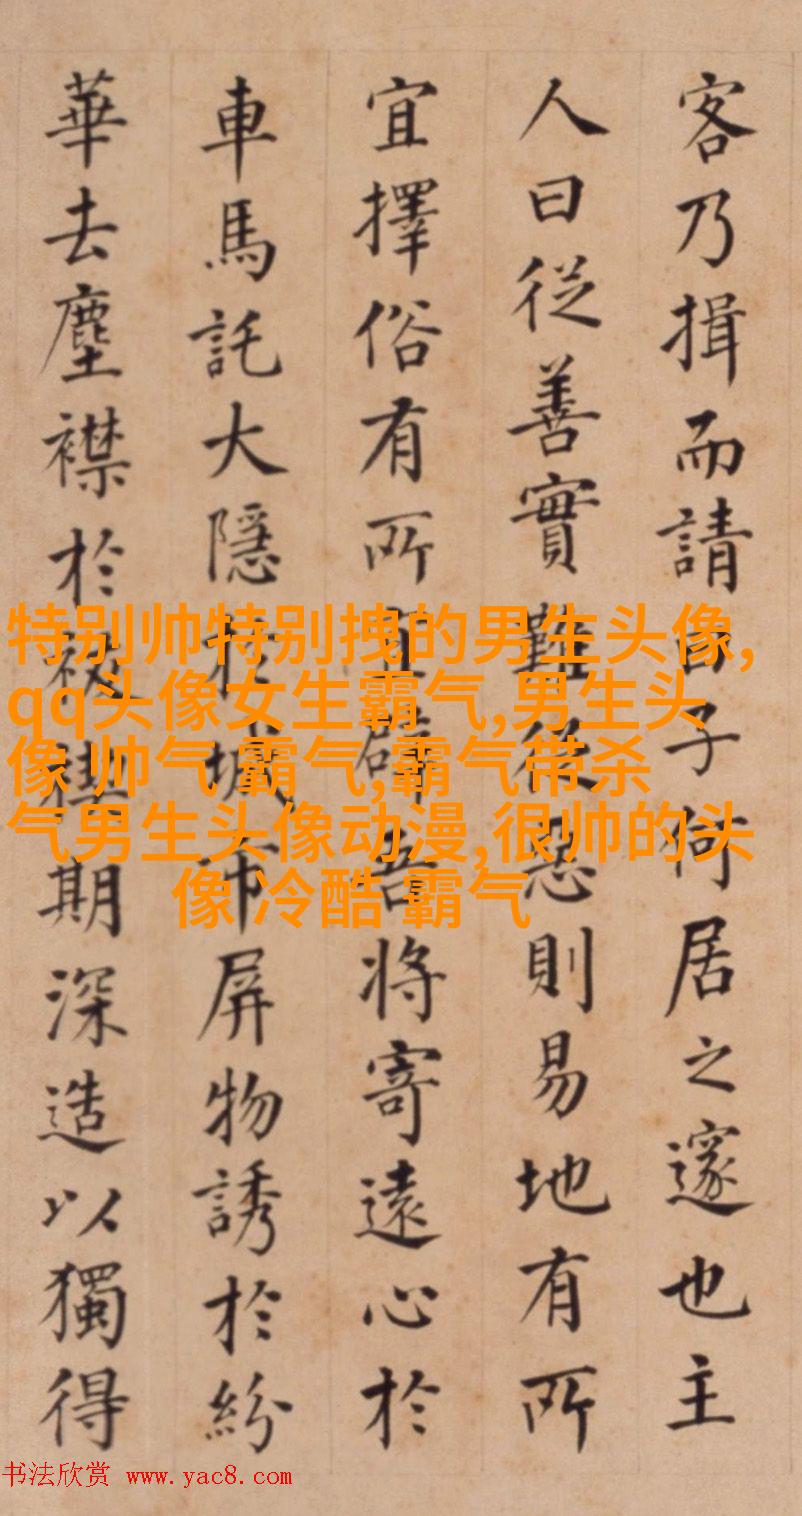 客乃揖而請曰子何居之邃也主
人曰從善實難從惡則易地有所
宜擇俗有所辟吾將寄遠心於
車馬託大隱於城市屏物誘於紛
華去塵襟於袚禊期深造以獨得
特别帅特别拽的男生头像,
qq头像女生霸气,男生头
像 帅气 霸气,霸气带杀
气男生头像动漫,很帅的头
像 冷酷 霸气
书法欣赏 www.yac8.com